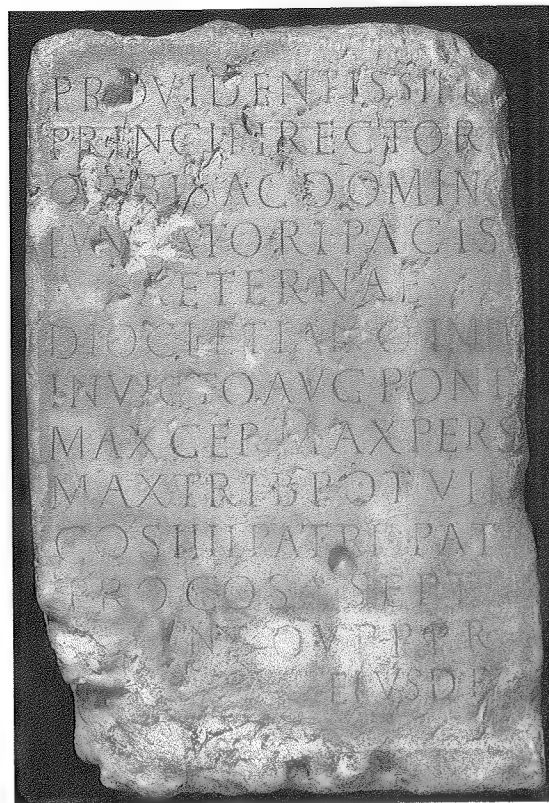 PROVIDENTISSIM
PRINCIPI RECTOR
ORBIS AC DOMIN
FVNDATORI PACIS
AETERNAE
DIOCLETIANO
INVICTO AVG PONT
MAX GER MAX PERS
MAX TRIB POT VII
COS III PATRI PAT
PROCOS SEPT
V P P P R
EIVSDE